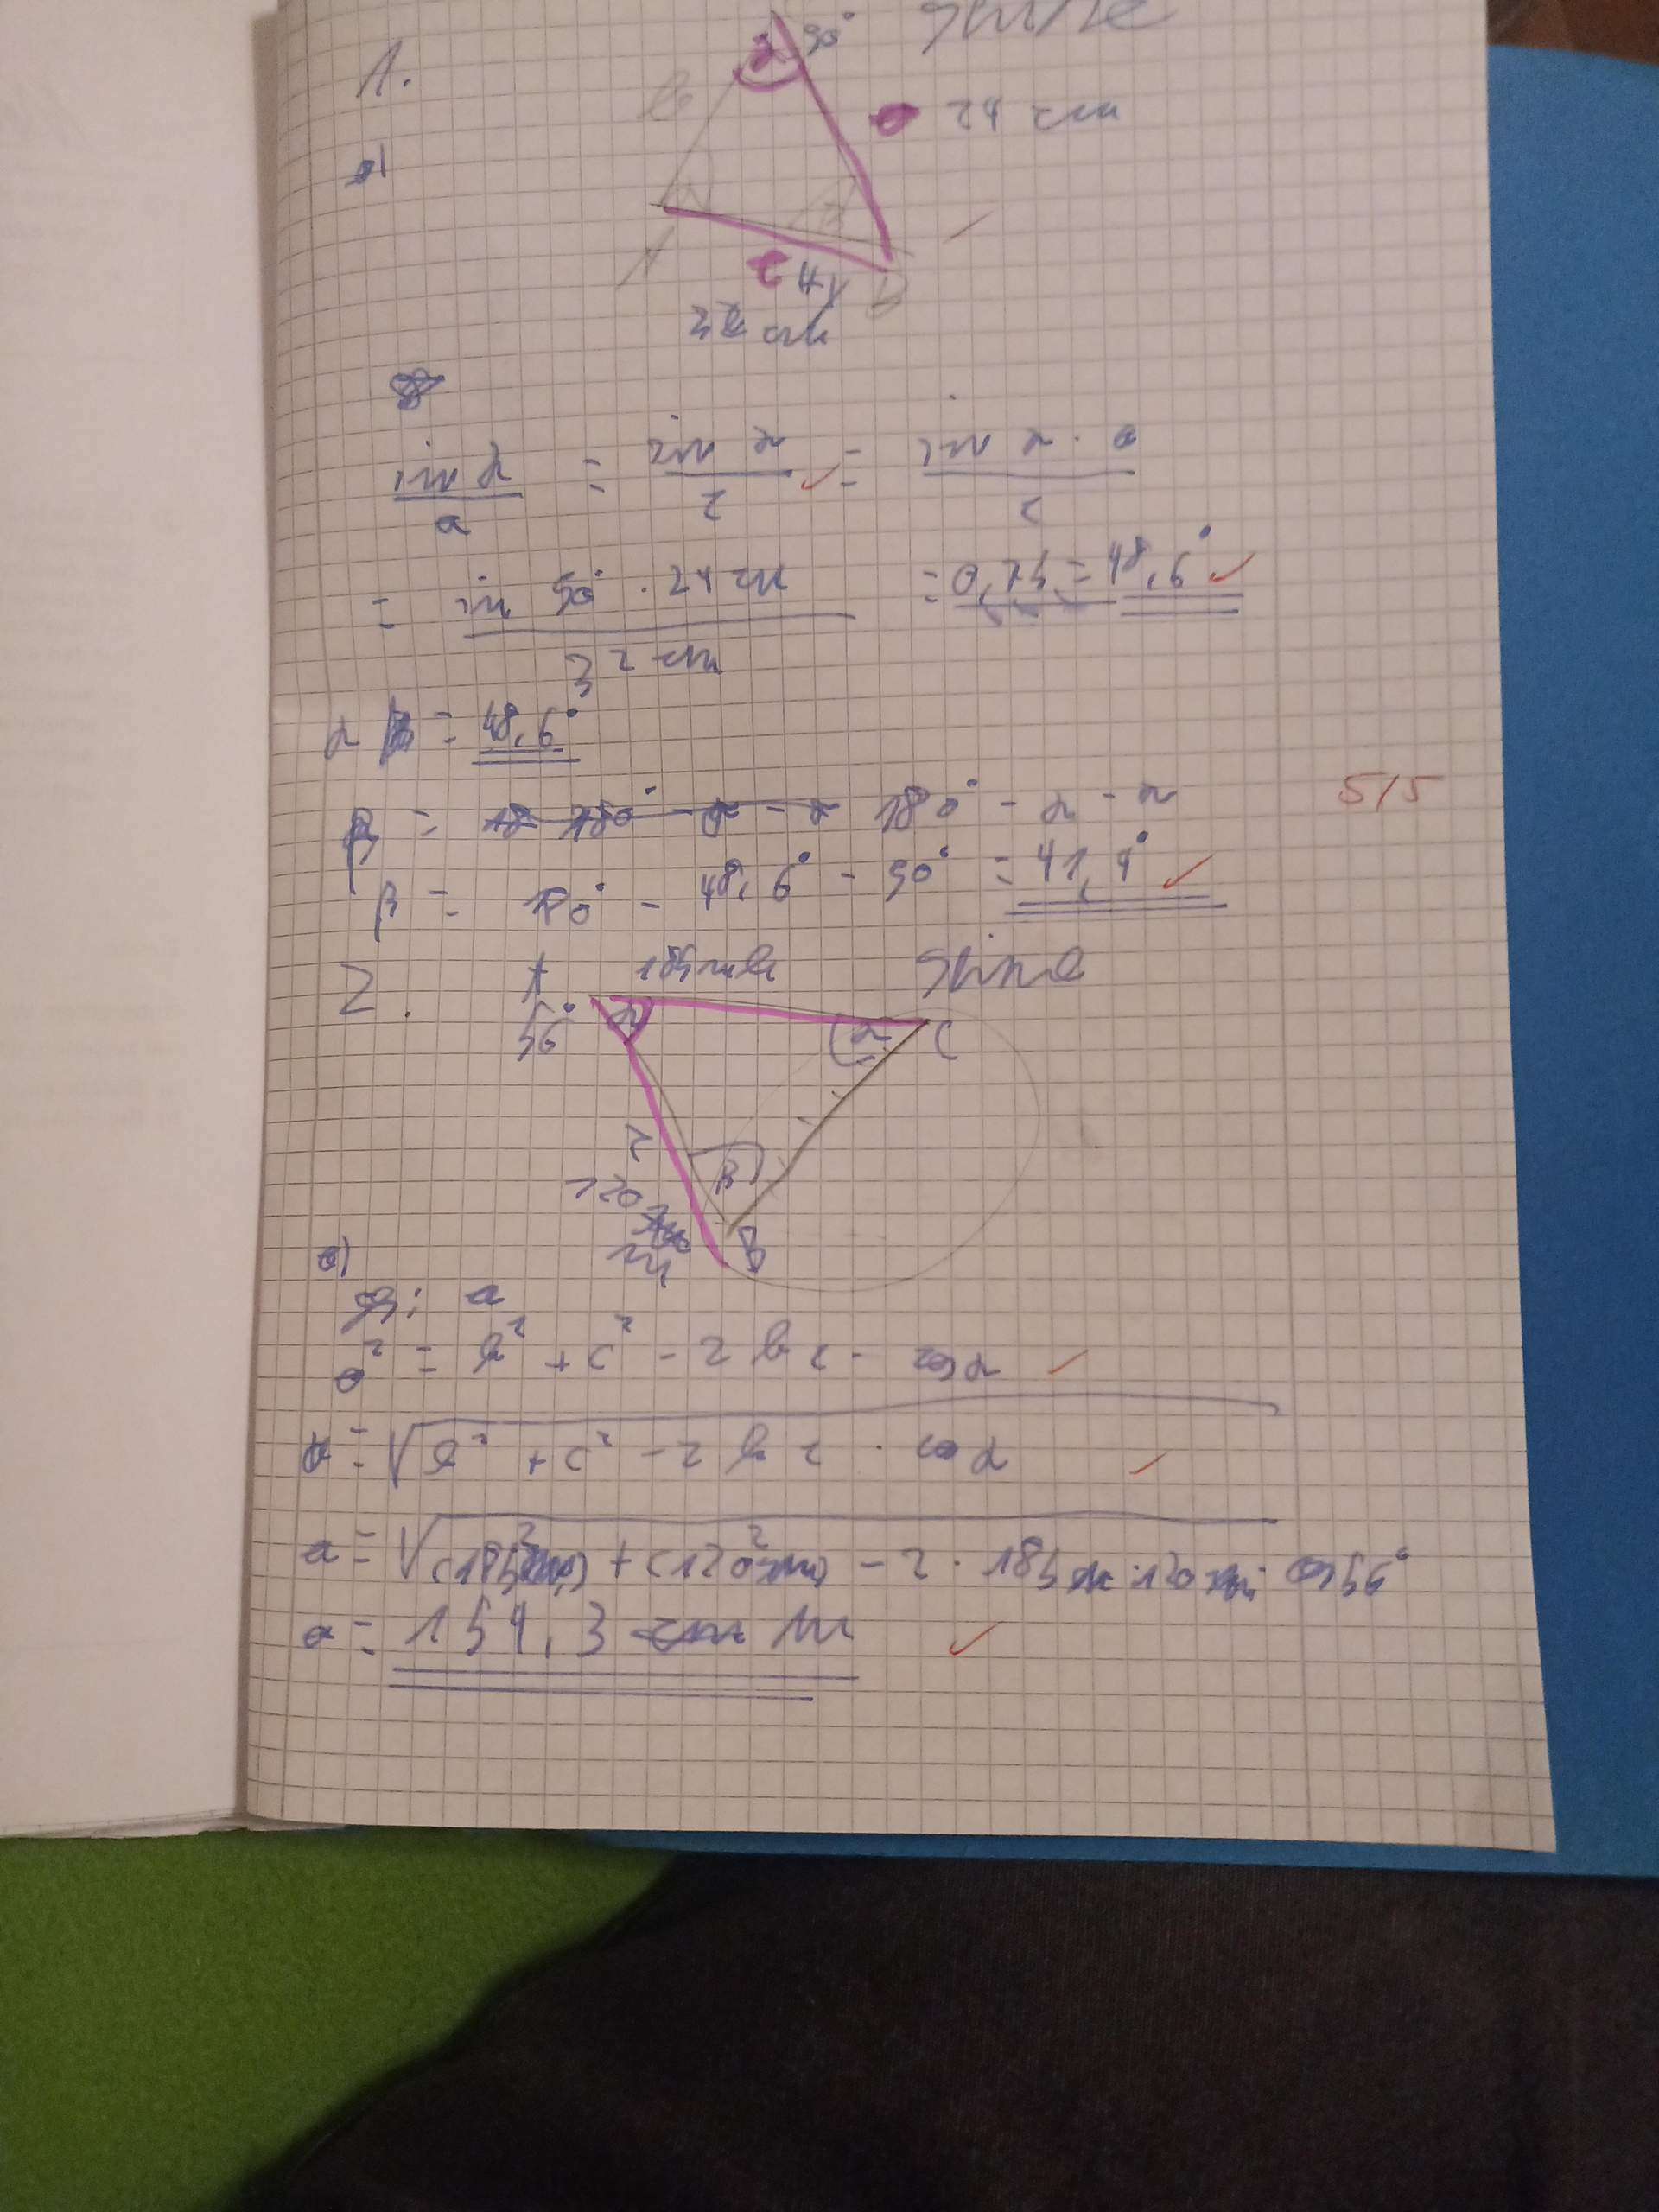 1.
Skizze
γ 90°
b
a 24 cm
a)
A
β
c
B
32 cm
sin α / a = sin γ / c = sin γ · a / c
= sin 90° · 24 cm / 32 cm = 0,75 = 48,6°
α = 48,6°
β = 180° - α - γ
5/5
β = 180° - 48,6° - 90° = 41,4°
2.
A
185 m b
Skizze
56°
α
γ
C
c
β
120
m
B
a)
ges: a
a² = b² + c² - 2 b c · cos α
a = √b² + c² - 2 b c · cos α
a = √(185 m)² + (120 m)² - 2 · 185 m · 120 m · cos 56°
a = 154,3 m